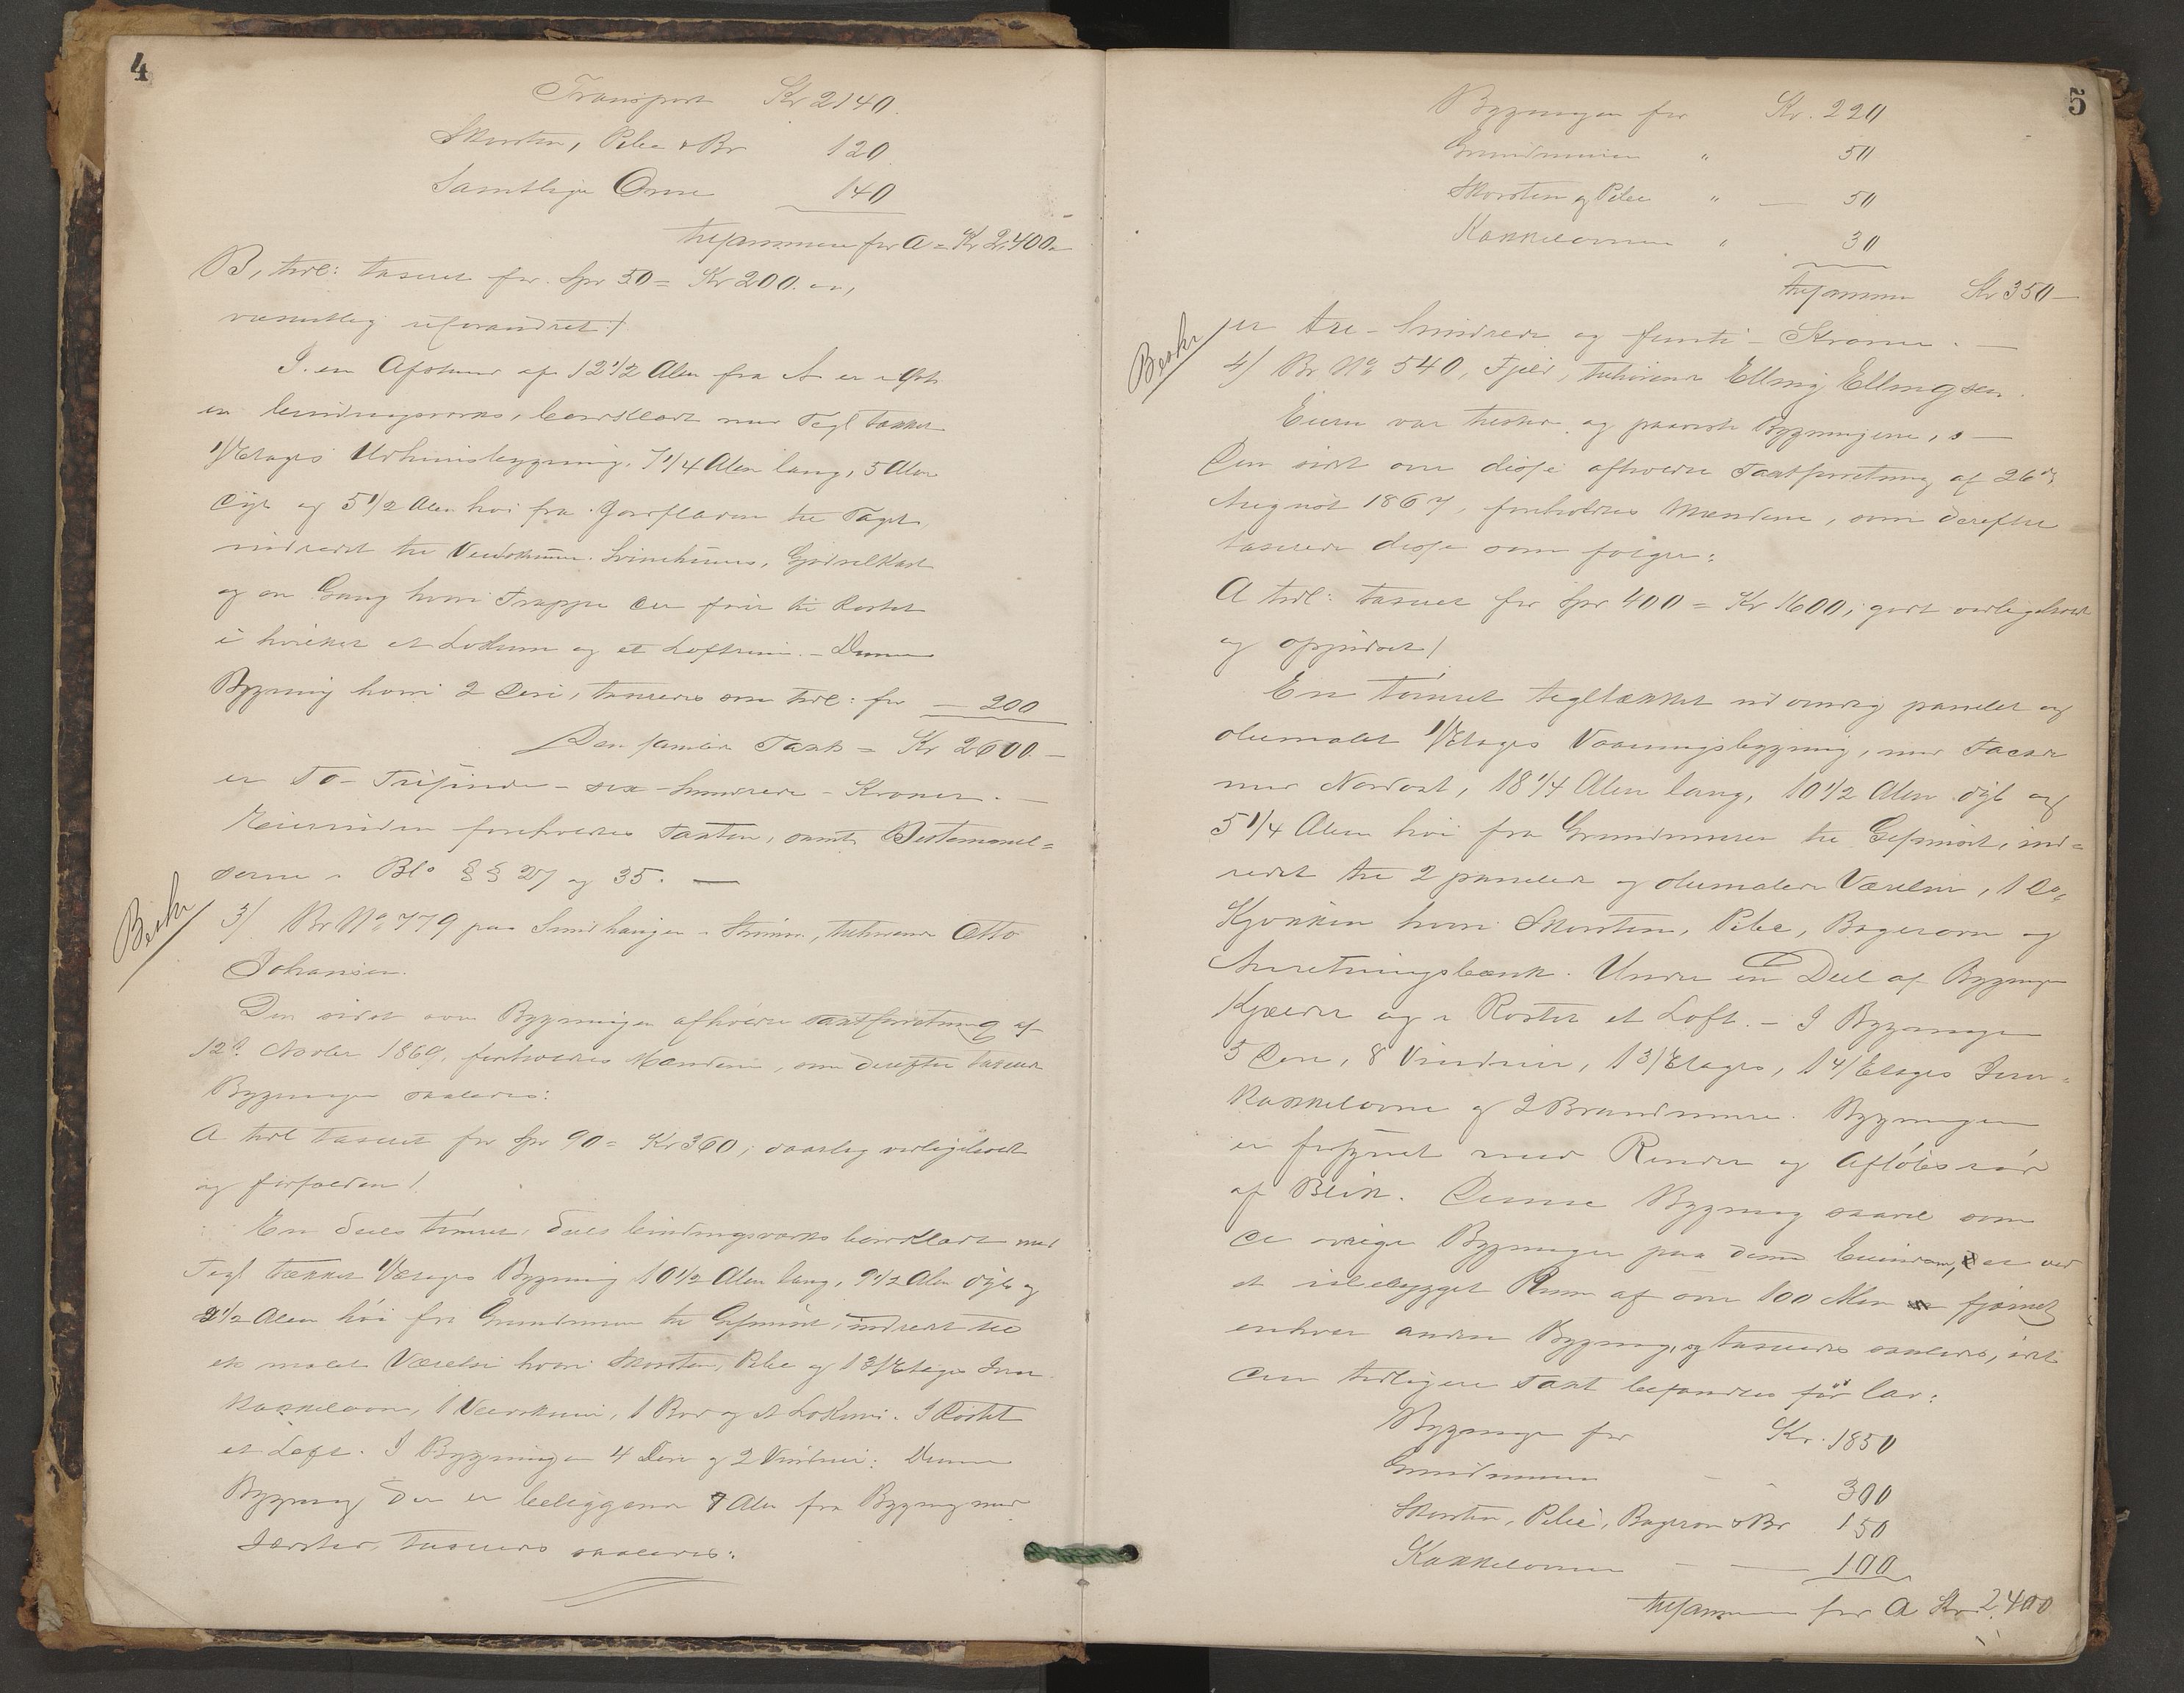 4
Transport Kr 2140.
Skorsten, Pibe & Br 120
Samtlige Ovne 140
tilsammen for A = Kr 2,400.
B, tidl: taxeret for Spr 50 = Kr 200.
væsentlig uforandret /
I en Afstand af 12 1/2 Alen fra A er opført
en bindingsværks, bordklædt med Tegl tækket
1/Etages Udhuusbygning, 7 1/4 Alen lang, 5 Alen
dyb og 5 1/2 Alen høi fra Jordfladen til Taget
indredet til Vedskuur, Svinehuus, Gjødselkast
og en Gang hvori Trappe der fører til Røstet
i hvilket et Lokum og et Loftrum. - Denne
Bygning hvori 2 Døre, taxeres som tidl: for — 200
Den samlede Taxt = Kr 2600. —
er To - Tusinde - sex - hundrede - Kroner. —
Eierinden foreholdtes Taxten, samt Bestemmel=
serne i Bl° §§ 27 og 35. —
Beskr
3) Br N° 779 paa Smidhaugen i Strinen, tilhørende Otto
Johansen.
Den sidst over Bygningen afholdte Taxtforretning af
12te Novbr 1869, foreholdtes Mændene, som derefter taxerede
Bygningen saaledes:
A tidl taxeret for Spr 90 = Kr 360; daarlig vedligeholdt
og forfalden /
En deels tømret, deels bindingsværks bordklædt med
Tegl tækket 1/Etages Bygning 10 1/2 Alen lang, 9 1/2 Alen dyb og
2 1/2 Alen høi fra Grundmuren til Gesimset, indredt til
et malet Værelse hvori Skorsten, Pibe og 1 3/Etages Jern
kakkelovn, 1 Vedskuur, 1 Bod og et Lokum. I Røstet
et Loft. I Bygningen 4 Døre og 2 Vinduer: Denne
Bygning der er beliggende 7 Alen fra Bygning med
Ildsted, taxeres saaledes:
5
Bygningen for Kr. 220
Grundmuren " 50
Skorsten og Pibe " — 50
Kakkelovnen " 30
tilsammen Kr 350 —
er tre - hundrede og femti - Kroner. —
Beskr
4) Br N° 540, Fjeld, tilhørende Elling Ellingsen.
Eieren var tilstede og paaviste Bygningerne, —
Den sidst over disse afholdte Taxtforretning af 26de
August 1867, foreholdtes Mændene, som derefter
taxerede disse som følger:
A tidl: taxeret for Spr 400 = Kr 1600; godt vedligeholdt
og oppudset /
En tømret tegltækket udvendig panelet og
oliemalet 1/Etages Vaaningsbygning, med Facade
mod Nordost, 18 1/4 Alen lang, 10 1/2 Alen dyb og
5 1/4 Alen høi fra Grundmuren til Gesimset, ind=
redet til 2 panelede og oliemalede Værelser, 1 do
Kjøkken hvori Skorsten, Pibe, Bagerovn og
Anretningsbænk. Under en Deel af Bygningen
Kjælder og i Røstet et Loft. - I Bygningen
5 Døre, 8 Vinduer, 1 3/Etages, 1 4/Etages Jern=
kakkelovne og 2 Brandmure. Bygningen
er forsynet med Render og Afløbsrør
af Blik. Denne Bygning saavel som
de øvrige Bygninger paa denne Eiendom, er ved
et ubebygget Rum af over 100 Alen fjernet
enhver anden Bygning, og taxeredes saaledes, idet
den tidligere Taxt befandtes for lav:
Bygningen for Kr. 1850
Grundmuren 300
Skorsten, Pibe, Bagerovn & Br 150
Kakkelovnen — 100
tilsammen for A Kr 2,400